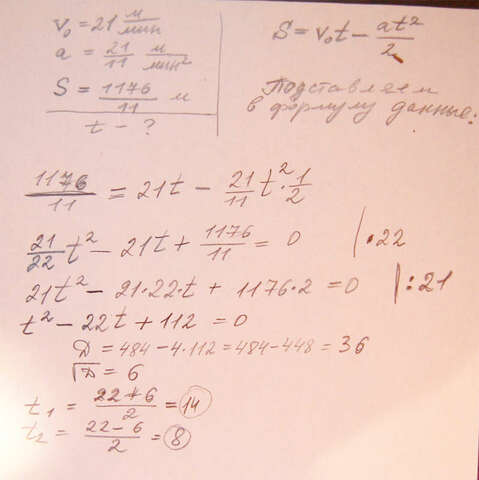 v₀ = 21 м/мин
a = 21/11 м/мин²
S = 1176/11 м
t - ?
S = v₀t - at²/2
Подставляем
в формулу данные:
1176/11 = 21t - 21/11 t² · 1/2
21/22 t² - 21t + 1176/11 = 0 | · 22
21t² - 21·22·t + 1176·2 = 0 | : 21
t² - 22t + 112 = 0
D = 484 - 4·112 = 484 - 448 = 36
√D = 6
t₁ = (22+6)/2 = 14
t₂ = (22-6)/2 = 8